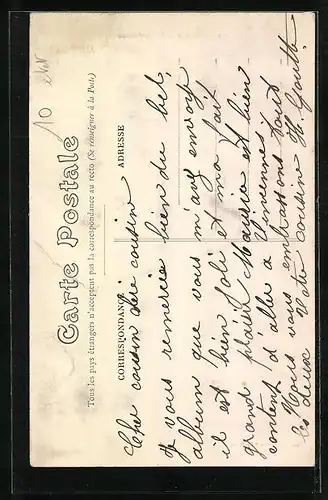 10
Carte Postale
Tous les pays étrangers n'acceptent pas la correspondance au recto (Se renseigner à la Poste.)
CORRESPONDANCE
ADRESSE
Cher cousin chère cousine
Je vous remercie bien du bel
album que vous m'avez envoyé
il est bien joli et m'a fait
grand plaisir Maurice est bien
content d'aller à Vincennes
Nous vous embrassons tous
les deux Votre cousine H.